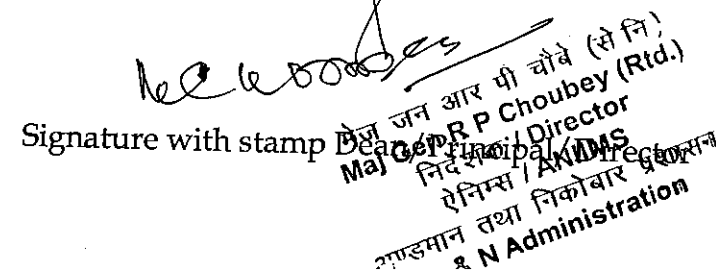 Signature with stamp Dean/Principal/Director
मेज जन आर पी चौबे (से नि)
Maj Gen R P Choubey (Rtd.)
निदेशक / Director
ऐनिम्स / ANIIMS
अण्डमान तथा निकोबार प्रशासन
& N Administration